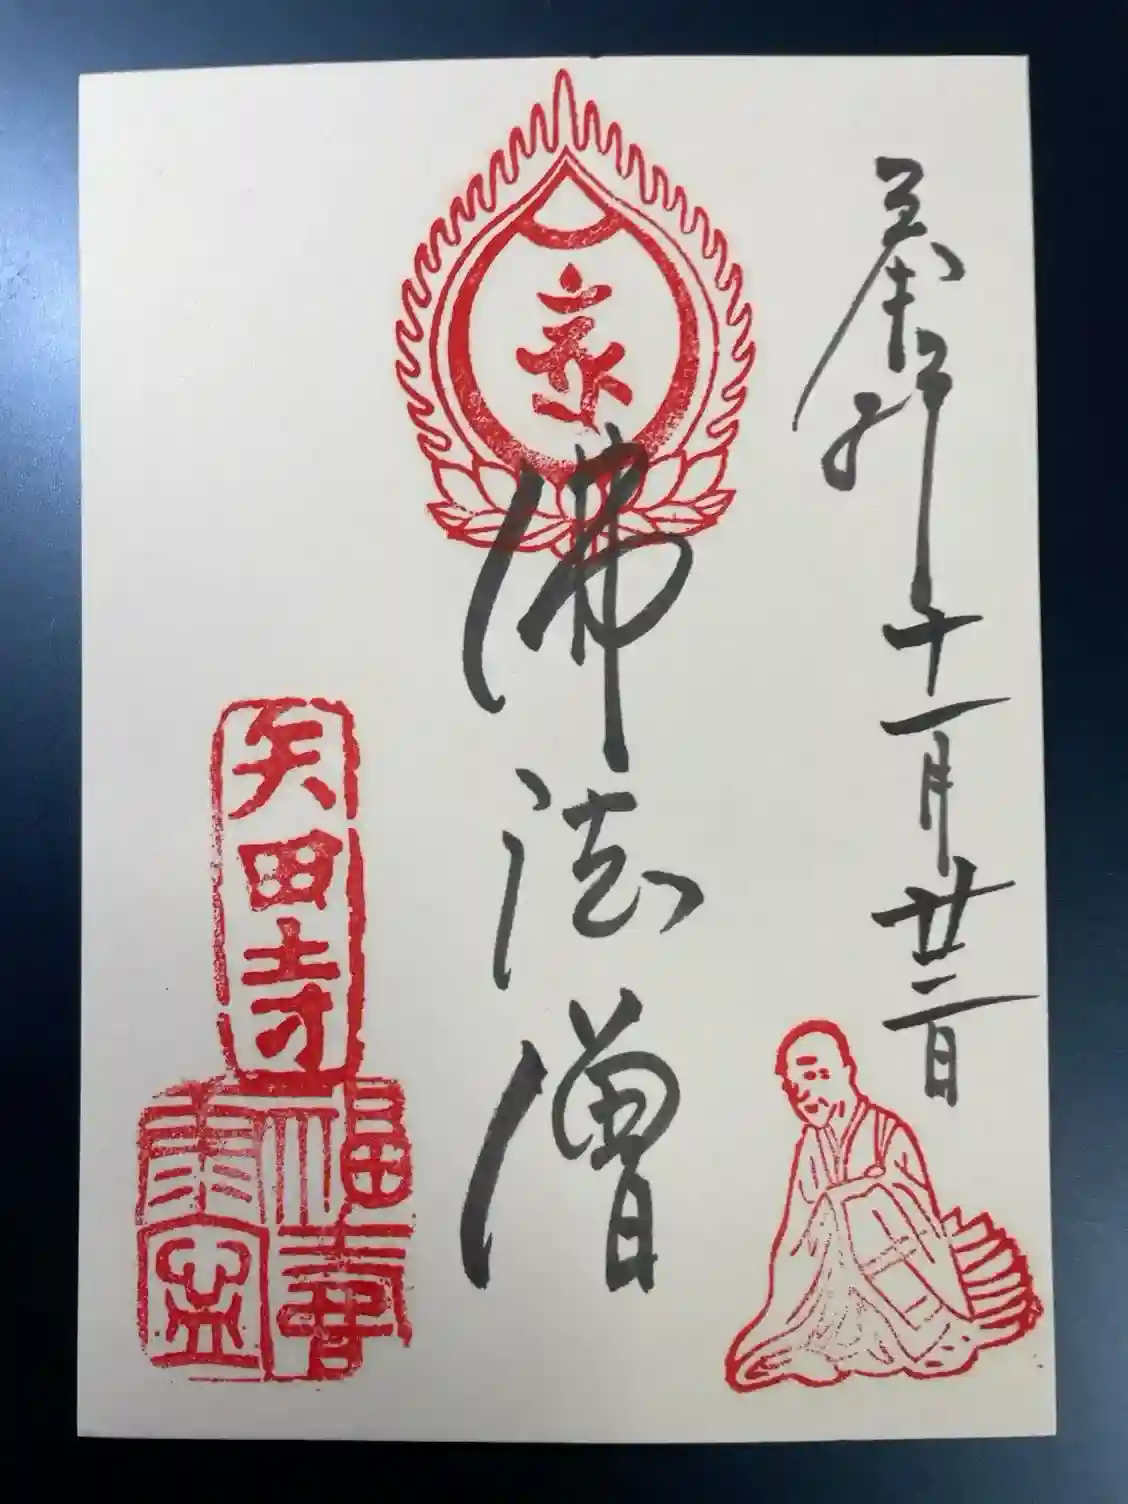 奉拝
十一月廿二日
佛法僧
矢田寺
福壽